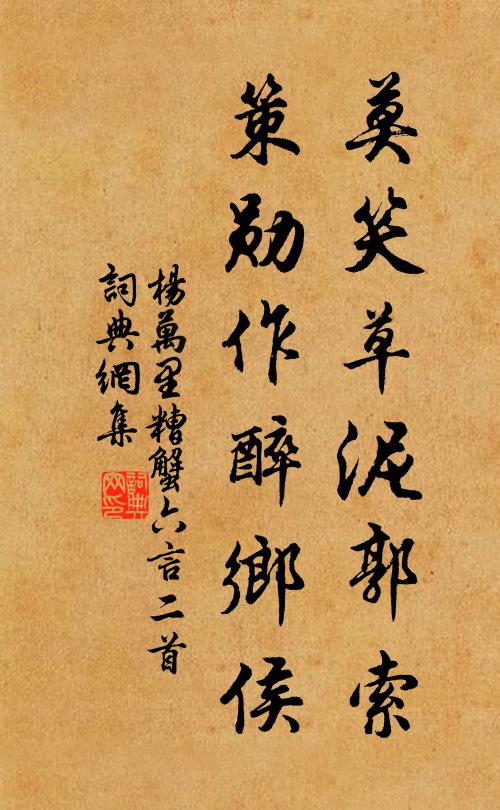 莫笑草泥郭索
策勛作醉鄉侯
楊萬里糟蟹六言二首
詞典網集
詞典網印